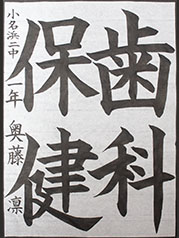 歯科
保健
小名浜二中 一年 奥藤 凛